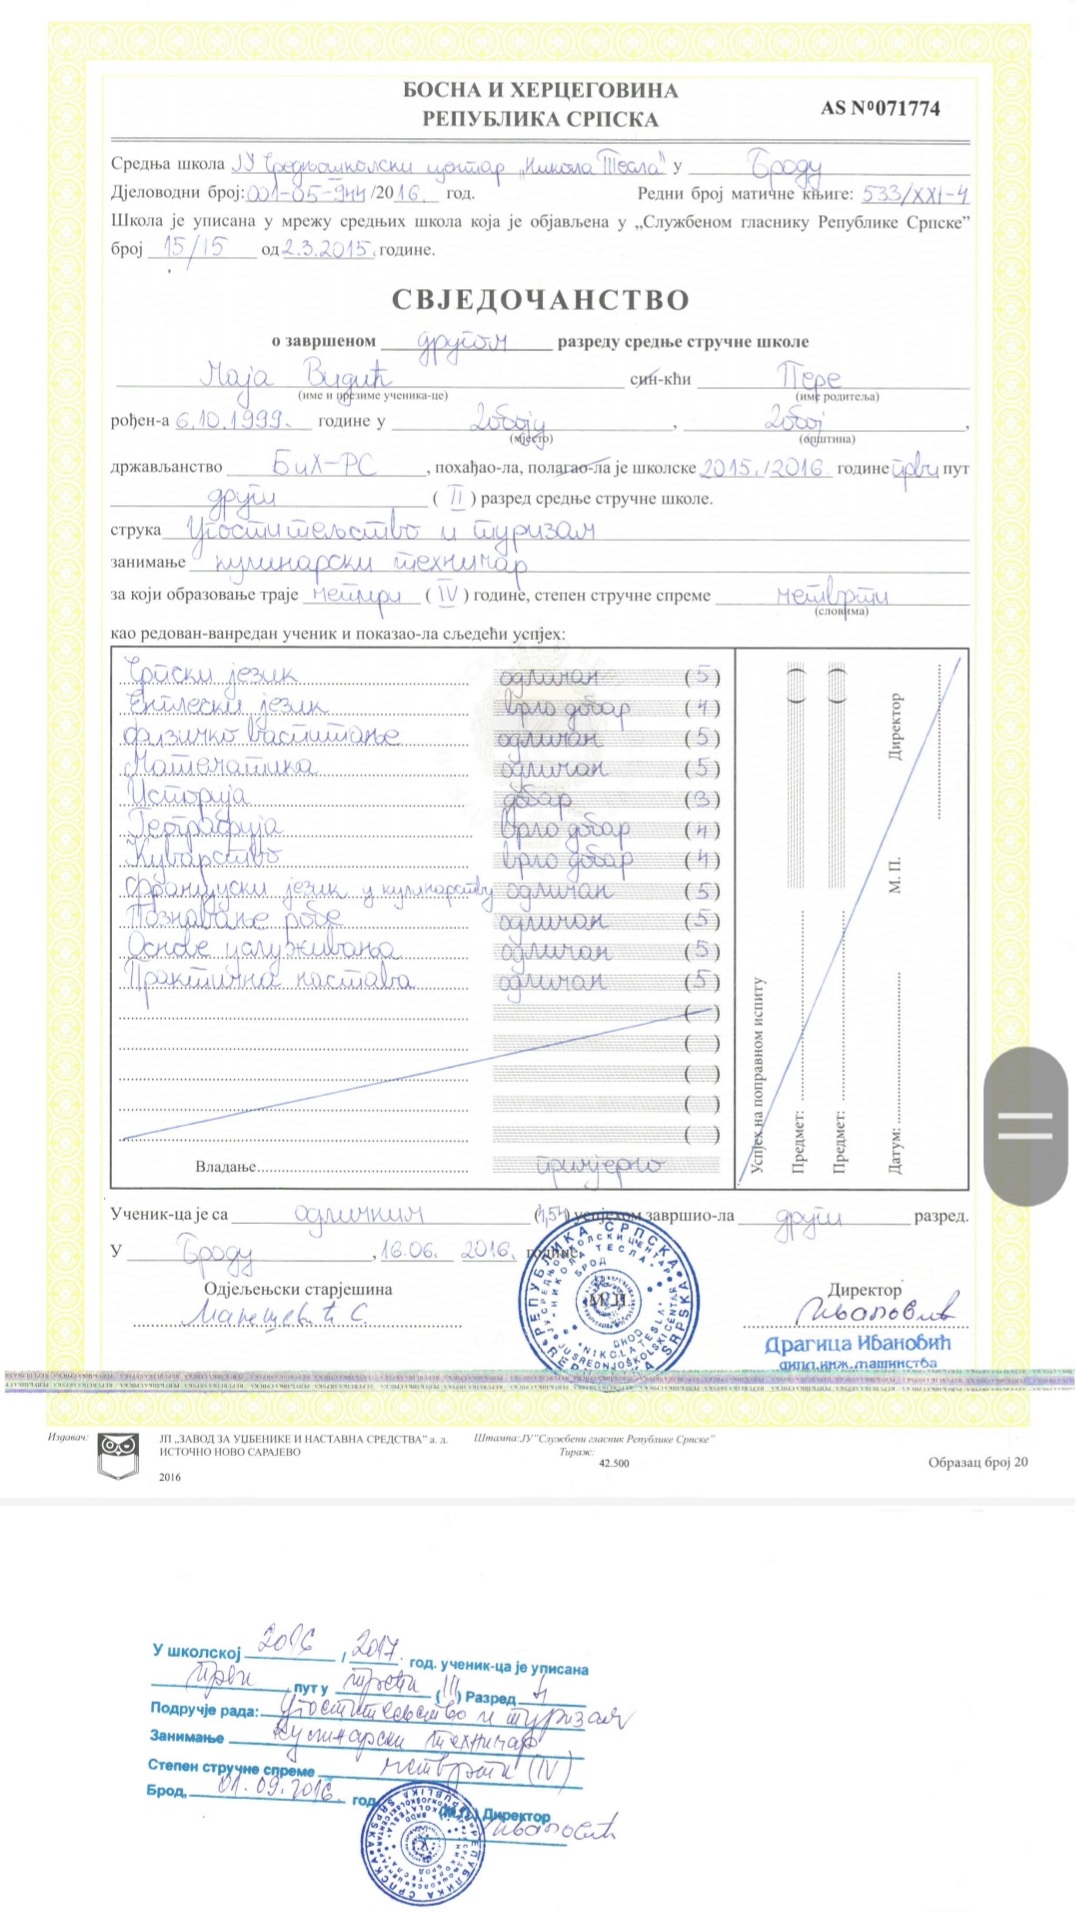 БОСНА И ХЕРЦЕГОВИНА
РЕПУБЛИКА СРПСКА
AS Nº071774
Средња школа ЈУ Средњошколски центар „Никола Тесла" у Броду
Дјеловодни број: 001-05-944/2016. год. Редни број матичне књиге: 533/XXI-4
Школа је уписана у мрежу средњих школа која је објављена у „Службеном гласнику Републике Српске”
број 15/15 од 2.3.2015. године.
СВЈЕДОЧАНСТВО
о завршеном другом разреду средње стручне школе
Маја Видић син-кћи Пере
(име и презиме ученика-це) (име родитеља)
рођен-а 6.10.1999. године у Добоју, Добој,
(мјесто) (општина)
држављанство БиХ-РС, похађао-ла, полагао-ла је школске 2015./2016. године први пут
други ( II ) разред средње стручне школе.
струка Угоститељство и туризам
занимање кулинарски техничар
за који образовање траје четири ( IV ) године, степен стручне спреме четврти
(словима)
као редован-ванредан ученик и показао-ла сљедећи успјех:
Српски језик одличан (5)
Енглески језик врло добар (4)
Физичко васпитање одличан (5)
Математика одличан (5)
Историја добар (3)
Географија врло добар (4)
Куварство врло добар (4)
Француски језик у кулинарству одличан (5)
Познавање робе одличан (5)
Основе услуживања одличан (5)
Практична настава одличан (5)
Владање примјерно
Успјех на поправном испиту
Предмет:
Предмет:
Датум: М. П. Директор
Ученик-ца је са одличним (4,54) успјехом завршио-ла други разред.
У Броду, 16.06. 2016. године.
Одјељенски старјешина М.П. Директор
РЕПУБЛИКА СРПСКА
Драгица Ивановић
дипл.инж.машинства
Издавач: ЈП „ЗАВОД ЗА УЏБЕНИКЕ И НАСТАВНА СРЕДСТВА” а. д.
ИСТОЧНО НОВО САРАЈЕВО
2016
Штампа: ЈУ"Службени гласник Републике Српске"
Тираж:
42.500
Образац број 20
У школској 2016 / 2017. год. ученик-ца је уписана
први пут у трећи (III) Разред 4
Подручје рада: Угоститељство и туризам
Занимање Кулинарски техничар
Степен стручне спреме четврти (IV)
Брод, 01.09.2016. год.
(М.П.) Директор